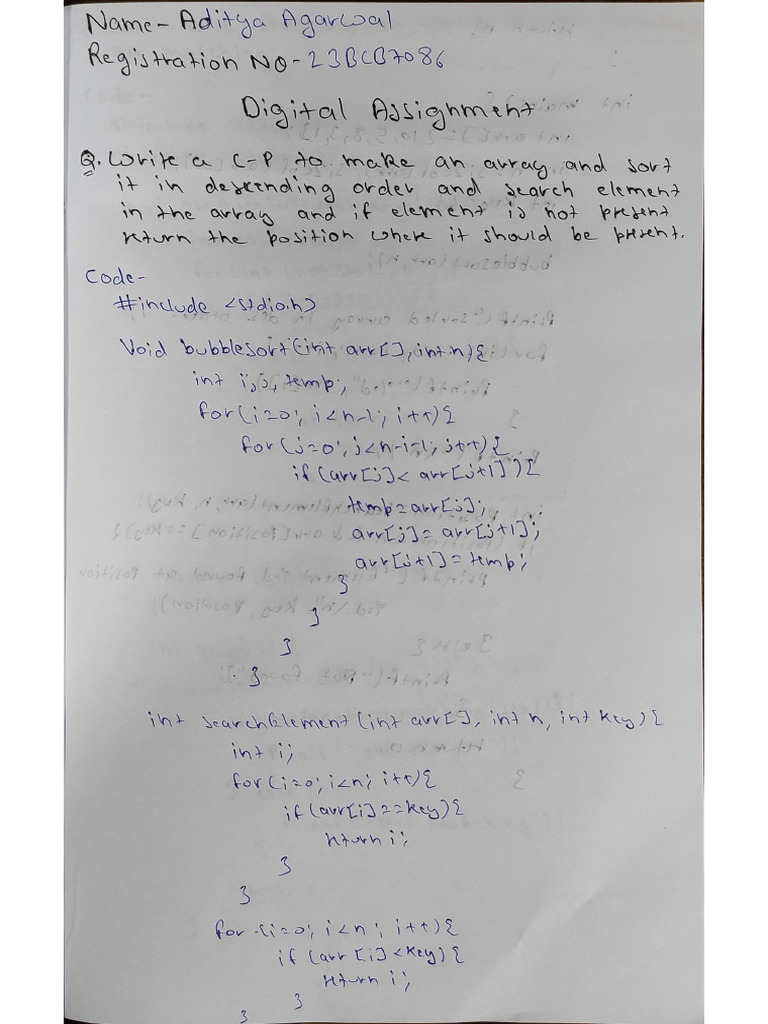 Name- Aditya Agarwal
Registration NO- 23BCB7086
Digital Assignment
Q. Write a C-P to make an array and sort
it in descending order and search element
in the array and if element is not present
return the position where it should be present.
Code-
#include <stdio.h>
Void bubblesort(int arr[], int n){
int i, j, temp;
for(i=0; i<n-1; i++){
for(j=0; j<n-i-1; j++){
if (arr[j]< arr[j+1]){
temp=arr[j];
arr[j]= arr[j+1];
arr[j+1]=temp;
}
}
}
}
int searchElement (int arr[], int n, int key){
int i;
for(i=0; i<n; i++){
if(arr[i]==key){
return i;
}
}
for (i=0; i<n; i++){
if (arr[i]<key){
return i;
}
}